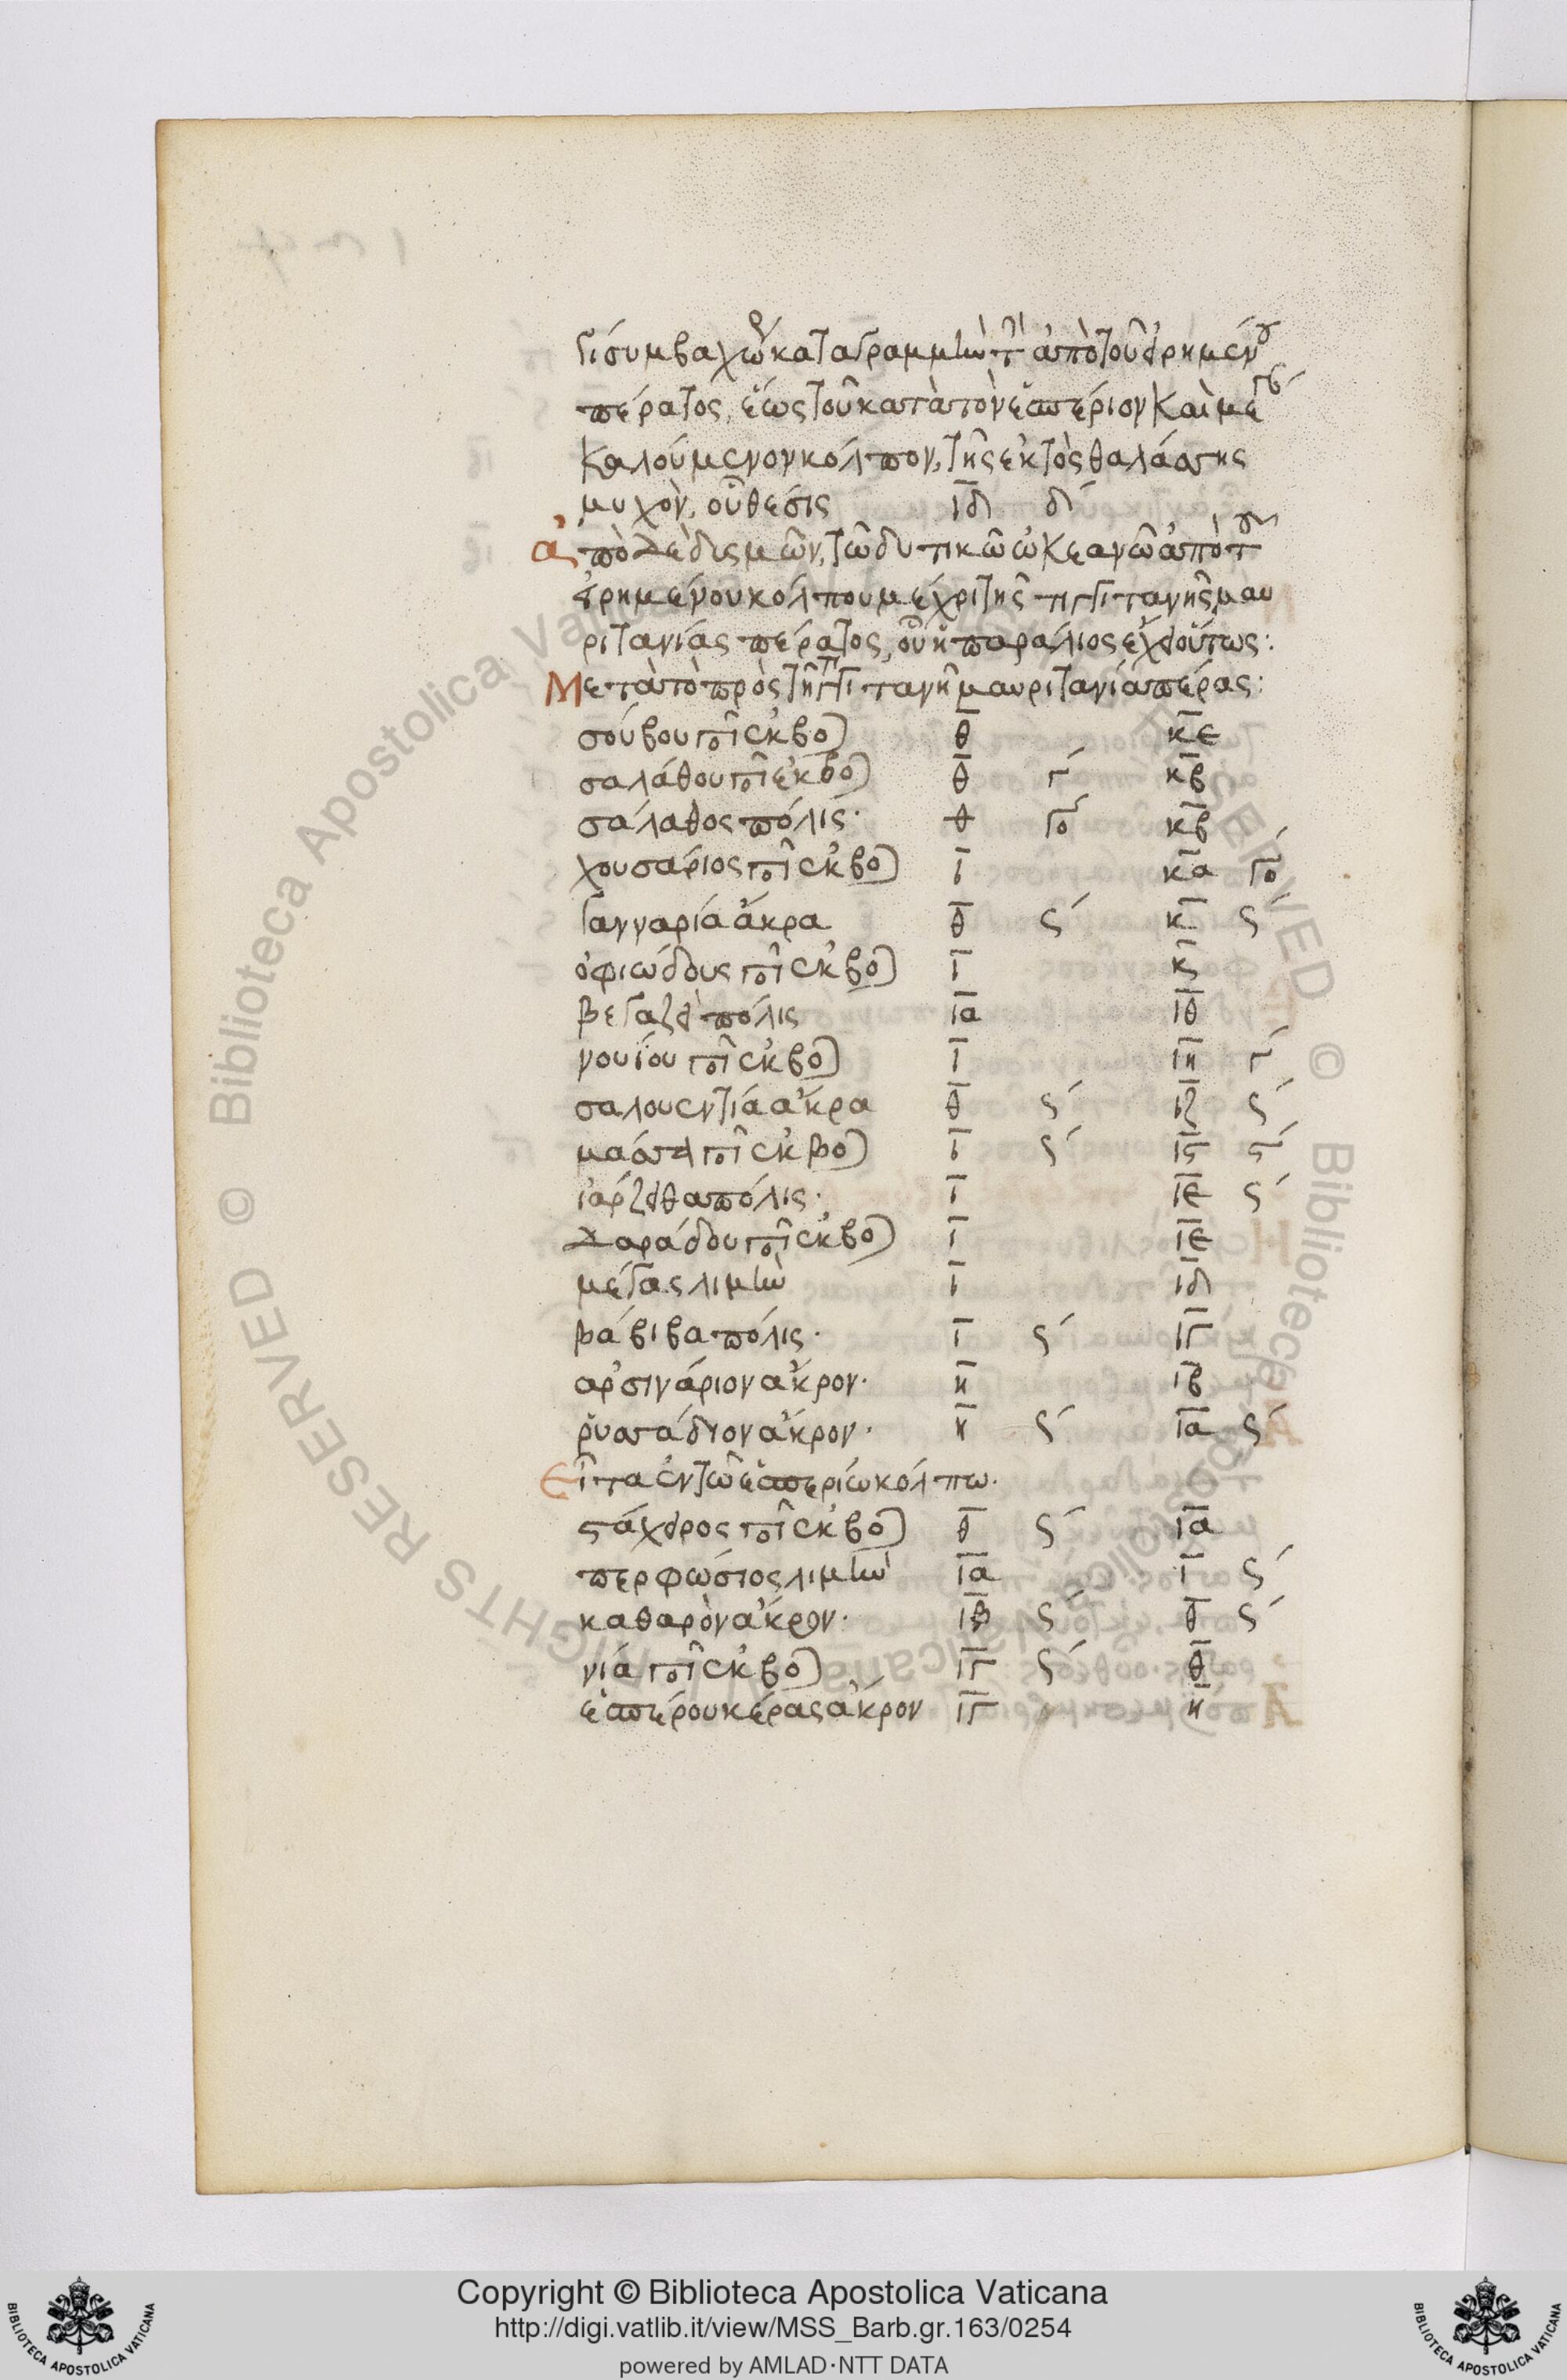 γίσυμβα χώρᾳ κατὰ γραμμὴν τὴν ἀπὸ τοῦ εἰρημένου
πέρατος, ἕως τοῦ κατὰ τὸν ἑσπέριον καὶ μέγαν
καλούμενον κόλπον, τῆς ἐκτὸς θαλάσσης
μυχὸν, οὗ θέσις ιδ δ´
ἀπὸ δὲ δυσμῶν, τῷ δυτικῷ ὠκεανῷ ἀπὸ τοῦ
εἰρημένου κόλπου μέχρι τῆς τιγγιτανῆς μαυ
ριτανίας πέρατος, οὗ ἡ παράλιος ἔχει οὕτως:
Μετὰ τὸ πρὸς τῇ τιγγιτανῇ μαυριτανίᾳ πέρας:
σούβου ποτ ἐκβο) θ κε
σαλάθου ποτ ἐκβο) θ γ´ κβ
σάλαθος πόλις· θ γο κβ
χουσάριος ποτ ἐκβο) ι κα γο
γανναρία ἄκρα θ ς´ κ ς´
ὀφιώδους ποτ ἐκβο) ι κ
βεγαζεὶ πόλις ια ιθ
νουΐου ποτ ἐκβο) ι ιη γ´
σαλουεντία ἄκρα θ ς´ ιζ ς´
μάσσα ποτ ἐκβο) ι ς´ ις ς´
ἰαρζειθα πόλις· ι ιε ς´
δαράδου ποτ ἐκβο) ι ιε
μέγας λιμὴν ι ιδ
βάβιβα πόλις· ι ς´ ιγ
ἀρσινάριον ἄκρον· η ιβ
ῥυσσάδιον ἄκρον· η ς´ ια ς´
Εἶτα ἐν τῷ ἑσπερίω κόλπω·
στάχειρος ποτ ἐκβο) θ ς´ ια
περφώσιος λιμὴν ια ι ς´
καθαρὸν ἄκρον· ιβ ς´ θ ς´
νία ποτ ἐκβο) ιγ ς´ θ
ἑσπέρου κέρας ἄκρον ιγ η
Copyright © Biblioteca Apostolica Vaticana
http://digi.vatlib.it/view/MSS_Barb.gr.163/0254
powered by AMLAD·NTT DATA
BIBLIOTECA APOSTOLICA VATICANA
BIBLIOTECA APOSTOLICA VATICANA